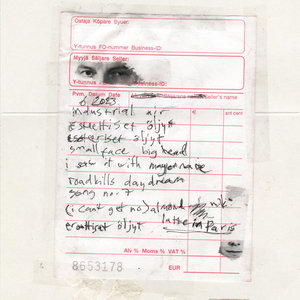 Ostaja Köpare Byuer:
Y-tunnus FO-nummer Business-ID:
Myyjä Säljare Seller:
Y-tunnus Business-ID:
Pvm, Datum Date
seller's name
6 2023
industrial nir
€ snt cent
esteettiset öljyt
öljyt
small face big head
i saw it with mayonnaise
roadkills daydream
song no. 7
(i cant get no) almond milk
eroottiset öljyt
latte in Paris
Alv % Moms % VAT %
8653178
EUR